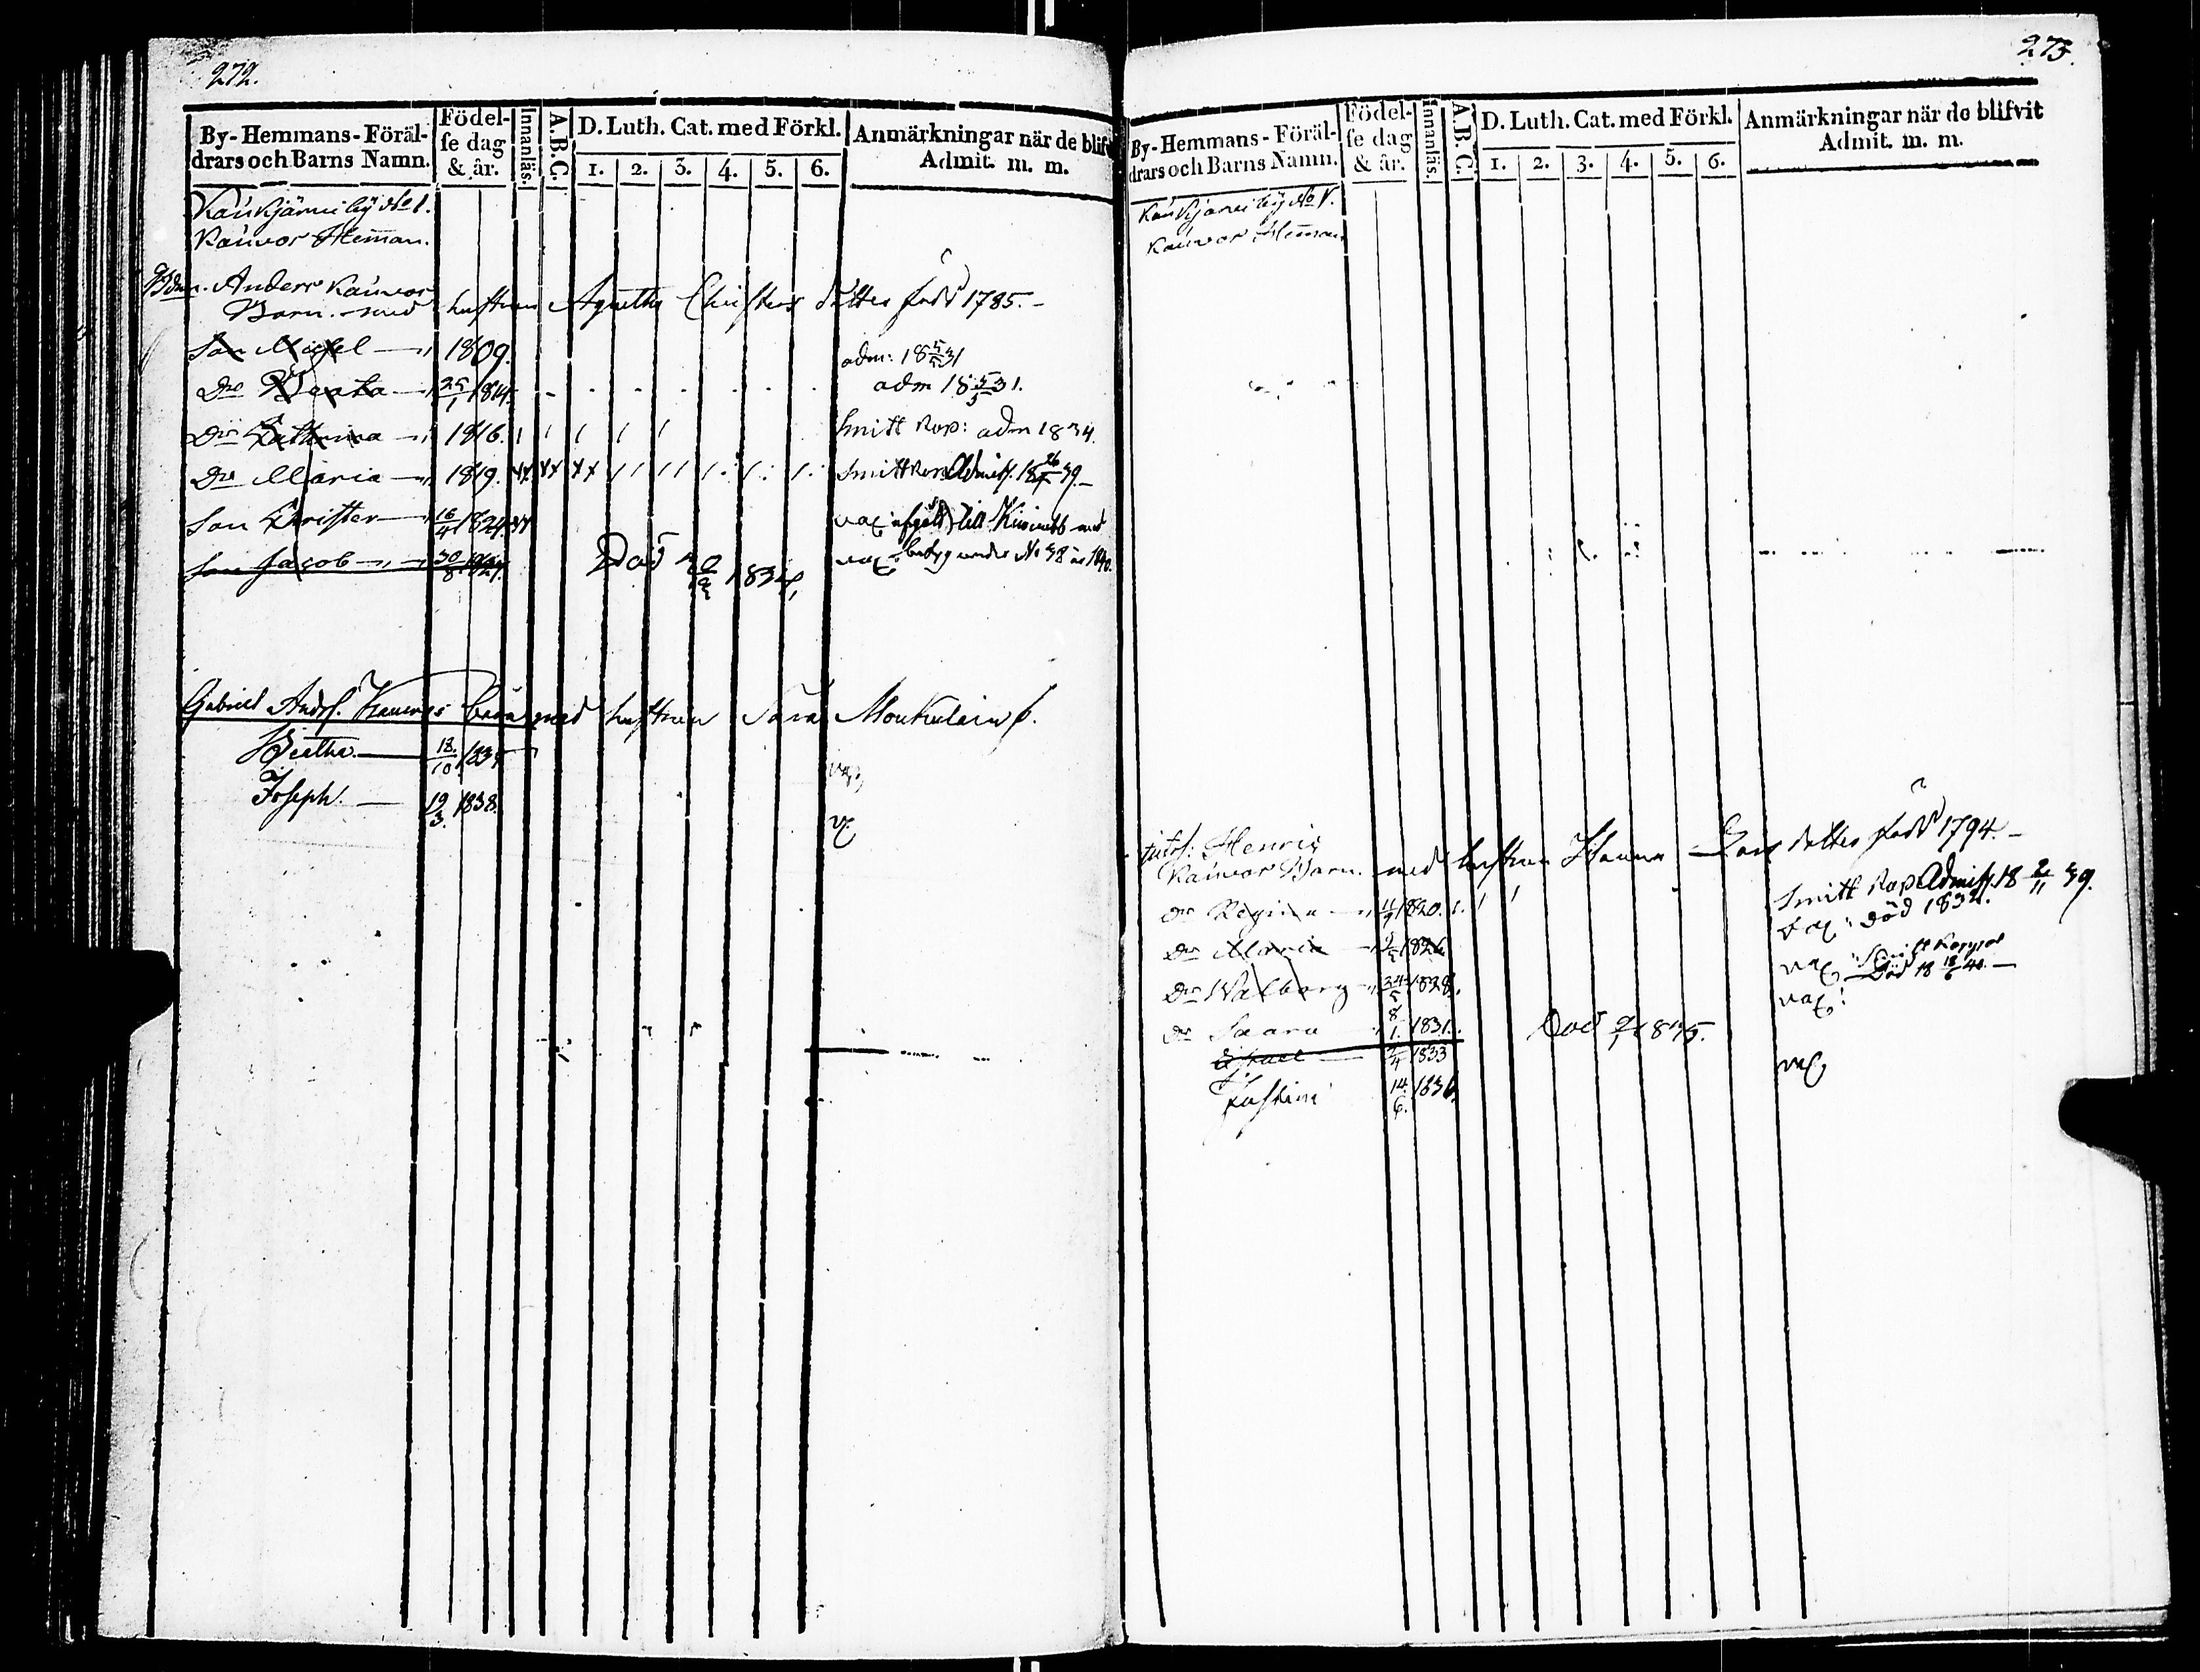 272.
By-Hemmans-Föräl-
drars och Barns Namn.
Födel-
se dag
& år.
Innanläs.
A.B.C.
D. Luth. Cat. med Förkl.
1. 2. 3. 4. 5. 6.
Anmärkningar när de blifv
Admit. m. m.
Kaukjärvi by No 1.
Kauvor Hemman.
Bdn. Anders Kauvor
Barn. med hustrun Agnetha Christers dotter född 1785.
Son Michel 1809. adm: 18 5/5 31
Dr Beata 25/1 1814. adm 18 5/5 31.
Dr Cathrina 1816. Smitt Kop: adm 1834.
Dr Maria 1819. Smitt Kop: Admiss. 18 26/ 39.
Son Christer 16/4 182 vac: till med
Son Jacob 30/8 1827. Död 1834. vac: betyg under No 38 år 1840.
Gabriel Andsf. Kauvors barn med hustrun Sara
Beatha 18/10 183 vac.
Joseph. 19/3. 1838. v.
273.
By-Hemmans-Föräl-
drars och Barns Namn.
Födel-
se dag
& år.
Innanläs.
A.B.C.
D. Luth. Cat. med Förkl.
1. 2. 3. 4. 5. 6.
Anmärkningar när de blifvit
Admit. m. m.
Kaukjärvi by No 1.
Kauvor Hemman
Henric
Kauvor Barn. med hustrun Hanna Lars dotter född 1794.
Dr Regina 1820. Smitt Kop Admiss. 18 2/11 39.
Dr Maria 1826 vac: död 1832.
Dr Walborg 24/5 1828. vac: Smitt Koppor
Död 18 18/6 40.
Dr Saara 8/1. 1831. vac:
1833 Död 1835.
Justina 14/6. 1836. vac